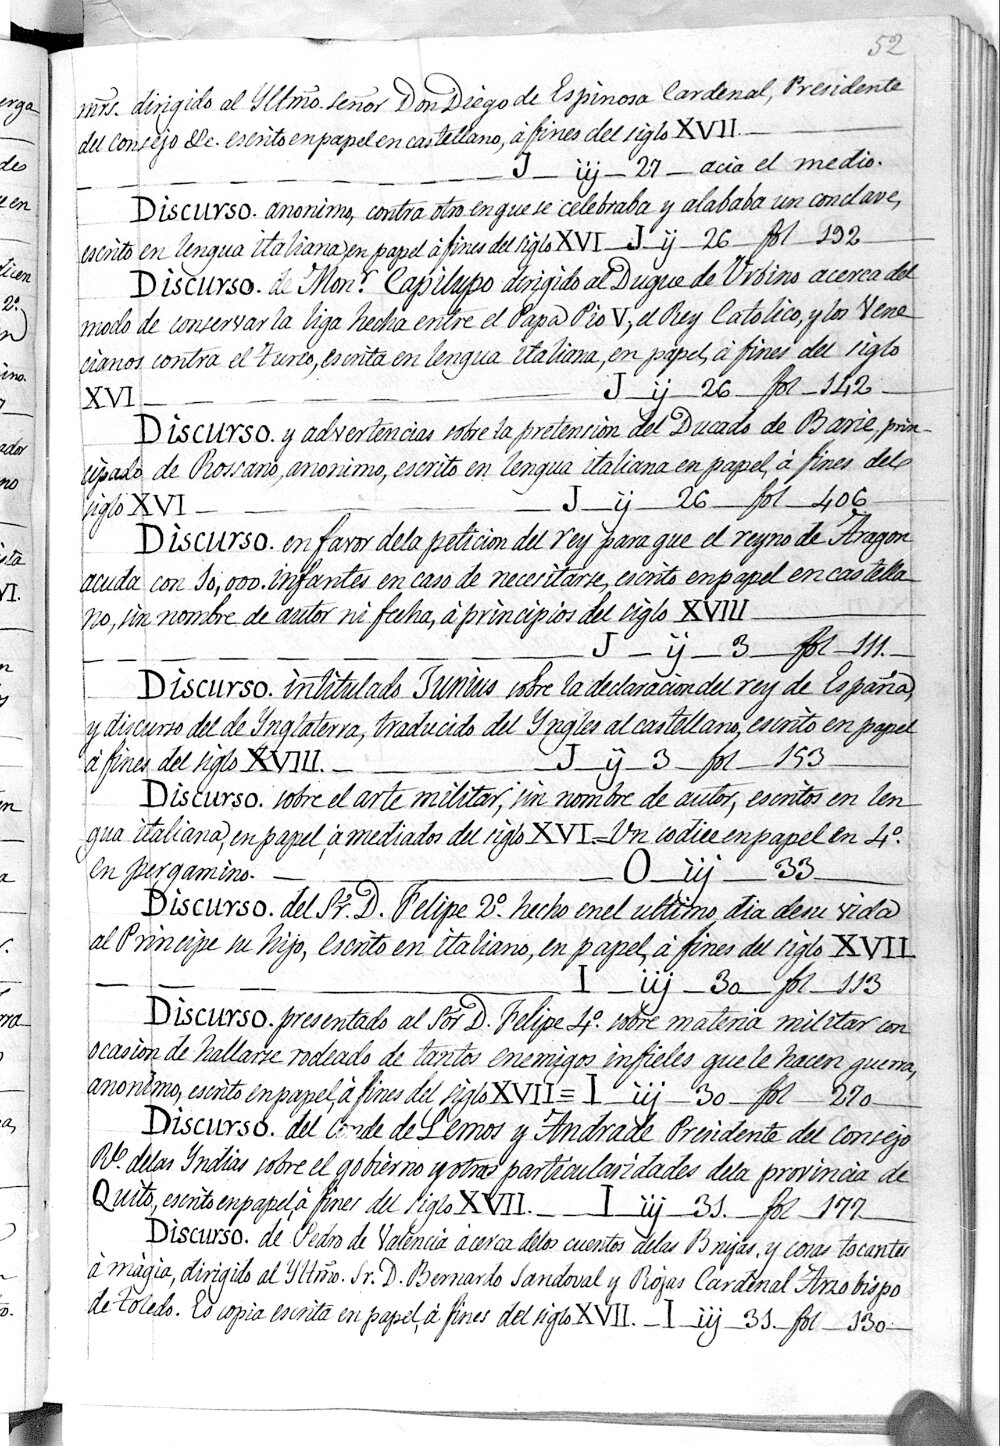 52
mrs. dirigido al Yltmo. señor Don Diego de Espinosa Cardenal, Presidente
del Consejo &c. escrito en papel en castellano, à fines del siglo XVII.
J iij 27 acia el medio.
Discurso. anonimo, contra otro en que se celebraba y alababa un conclave,
escrito en lengua italiana en papel à fines del siglo XVI J ij 26 fol 192
Discurso. de Monr. Capilupo dirigido al Duque de Urbino acerca del
modo de conservar la liga hecha entre el Papa Pio V, el Rey Catolico, y los Vene
cianos contra el turco, escrita en lengua italiana, en papel, à fines del siglo
XVI J ij 26 fol 142
Discurso. y advertencias sobre la pretension del Ducado de Barie, prin-
cipado de Rossano, anonimo, escrito en lengua italiana en papel, à fines del
siglo XVI J ij 26 fol 406
Discurso. en favor dela peticion del rey para que el reyno de Aragon
acuda con 10,000. infantes en caso de necesitarse, escrito en papel en castella
no, sin nombre de autor ni fecha, à principios del siglo XVIII
J ij 3 fol 111.
Discurso. intitulado Junius sobre la declaracion del rey de España,
y discurso del de Ynglaterra, traducido del Yngles al castellano, escrito en papel
à fines del siglo XVIII. J ij 3 fol 153
Discurso. sobre el arte militar, sin nombre de autor, escritos en len
gua italiana, en papel, à mediados del siglo XVI = Un codice en papel en 4º.
en pergamino. O iij 33
Discurso. del Sr. D. Felipe 2º. hecho enel ultimo dia desu vida
al Principe su hijo, escrito en italiano, en papel, à fines del siglo XVII
I iij 30 fol 113
Discurso. presentado al Sor D. Felipe 4º. sobre materia militar con
ocasion de hallarse rodeado de tantos enemigos infieles que le hacen guerra,
anonimo, escrito en papel, à fines del siglo XVII = I iij 30 fol 270
Discurso. del conde de Lemos y Andrade Presidente del consejo
Rl. delas Yndias sobre el gobierno y otras particularidades dela provincia de
Quito, escrito en papel, à fines del siglo XVII. I iij 31. fol 177
Discurso. de Pedro de Valencia àcerca delos cuentos delas Brujas, y cosas tocantes
à màgia, dirigido al Yltmo. Sr. D. Bernardo Sandoval y Rojas Cardenal Arzobispo
de toledo. Es copia escrita en papel, à fines del siglo XVII. I iij 31. fol 130.